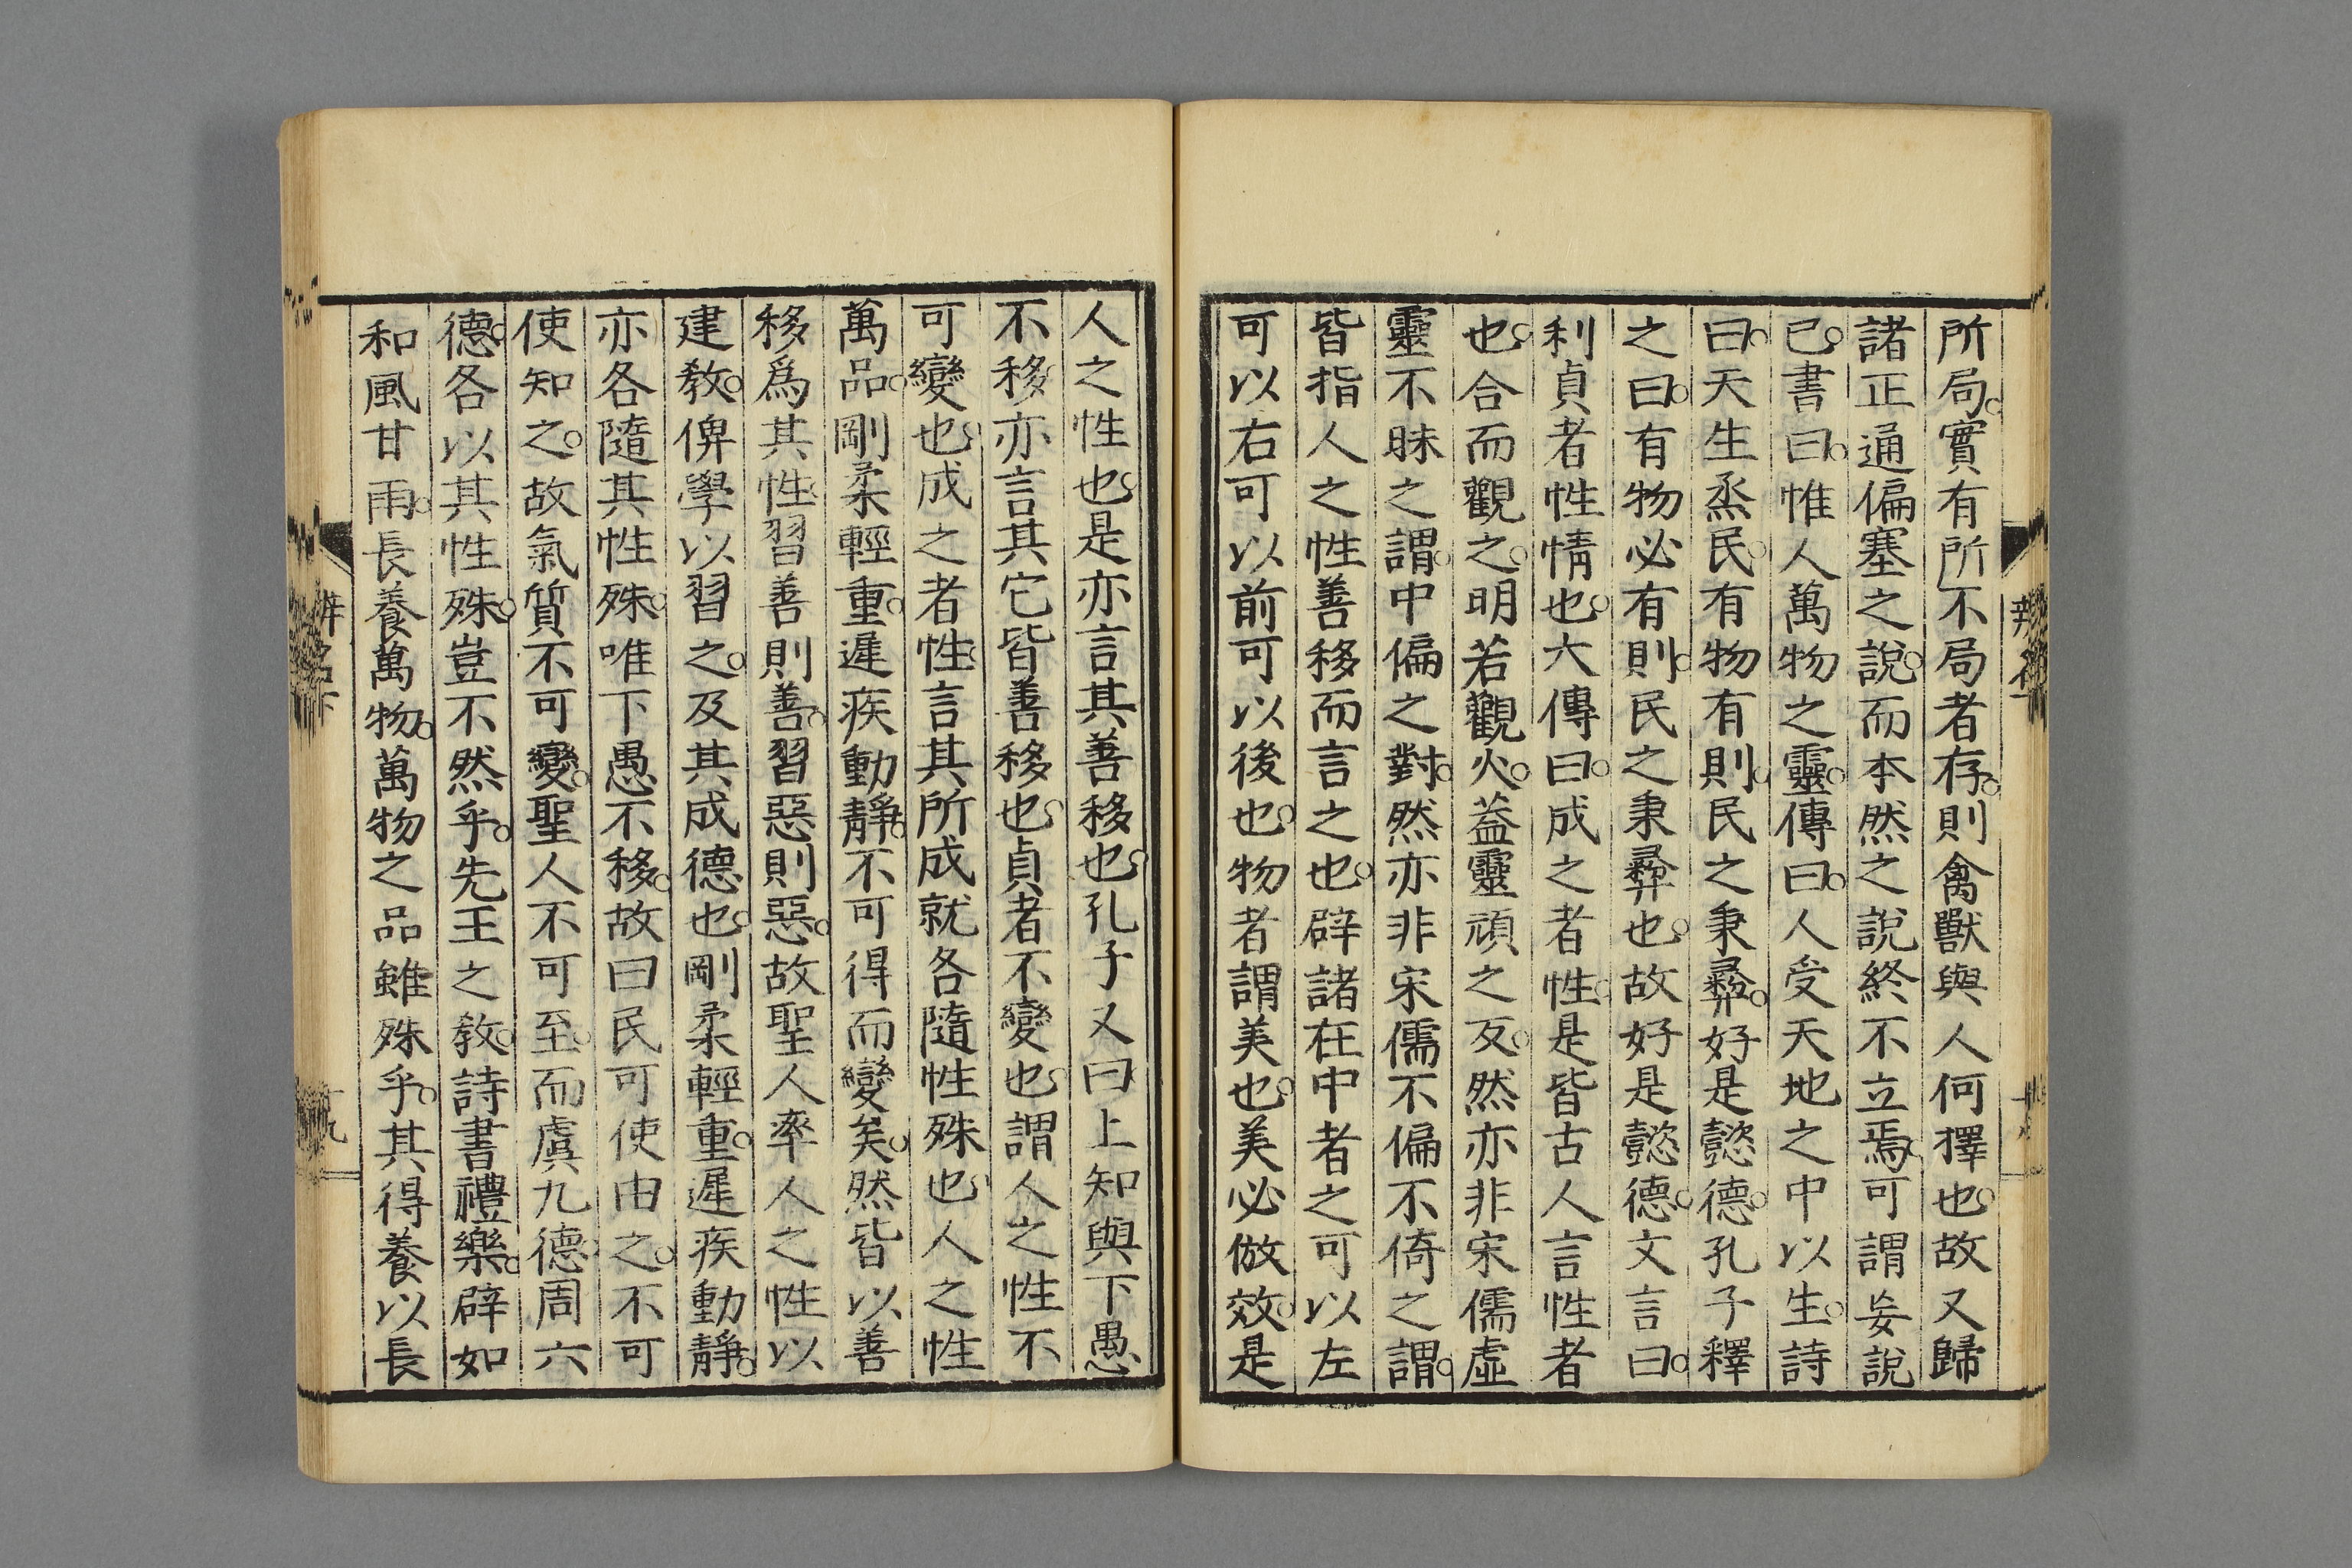 所局實有所不局者存則禽獸與人何擇也故又歸
諸正通偏塞之說而本然之說終不立焉可謂妄說
已書曰惟人萬物之靈傳曰人受天地之中以生詩
曰天生烝民有物有則民之秉彝好是懿德孔子釋
之曰有物必有則民之秉彝也故好是懿德文言曰
利貞者性情也大傳曰成之者性是皆古人言性者
也合而觀之明若觀火蓋靈頑之反然亦非宋儒虛
靈不昧之謂中偏之對然亦非宋儒不偏不倚之謂
皆指人之性善移而言之也辟諸在中者之可以左
可以右可以前可以後也物者謂美也美必倣效是
人之性也是亦言其善移也孔子又曰上知與下愚
不移亦言其它皆善移也貞者不變也謂人之性不
可變也成之者性言其所成就各隨性殊也人之性
萬品剛柔輕重遲疾動靜不可得而變矣然皆以善
移爲其性習善則善習惡則惡故聖人率人之性以
建教俾學以習之及其成德也剛柔輕重遲疾動靜
亦各隨其性殊唯下愚不移故曰民可使由之不可
使知之故氣質不可變聖人不可至而虞九德周六
德各以其性殊豈不然乎先王之教詩書禮樂辟如
和風甘雨長養萬物萬物之品雖殊乎其得養以長
辨名下
十九